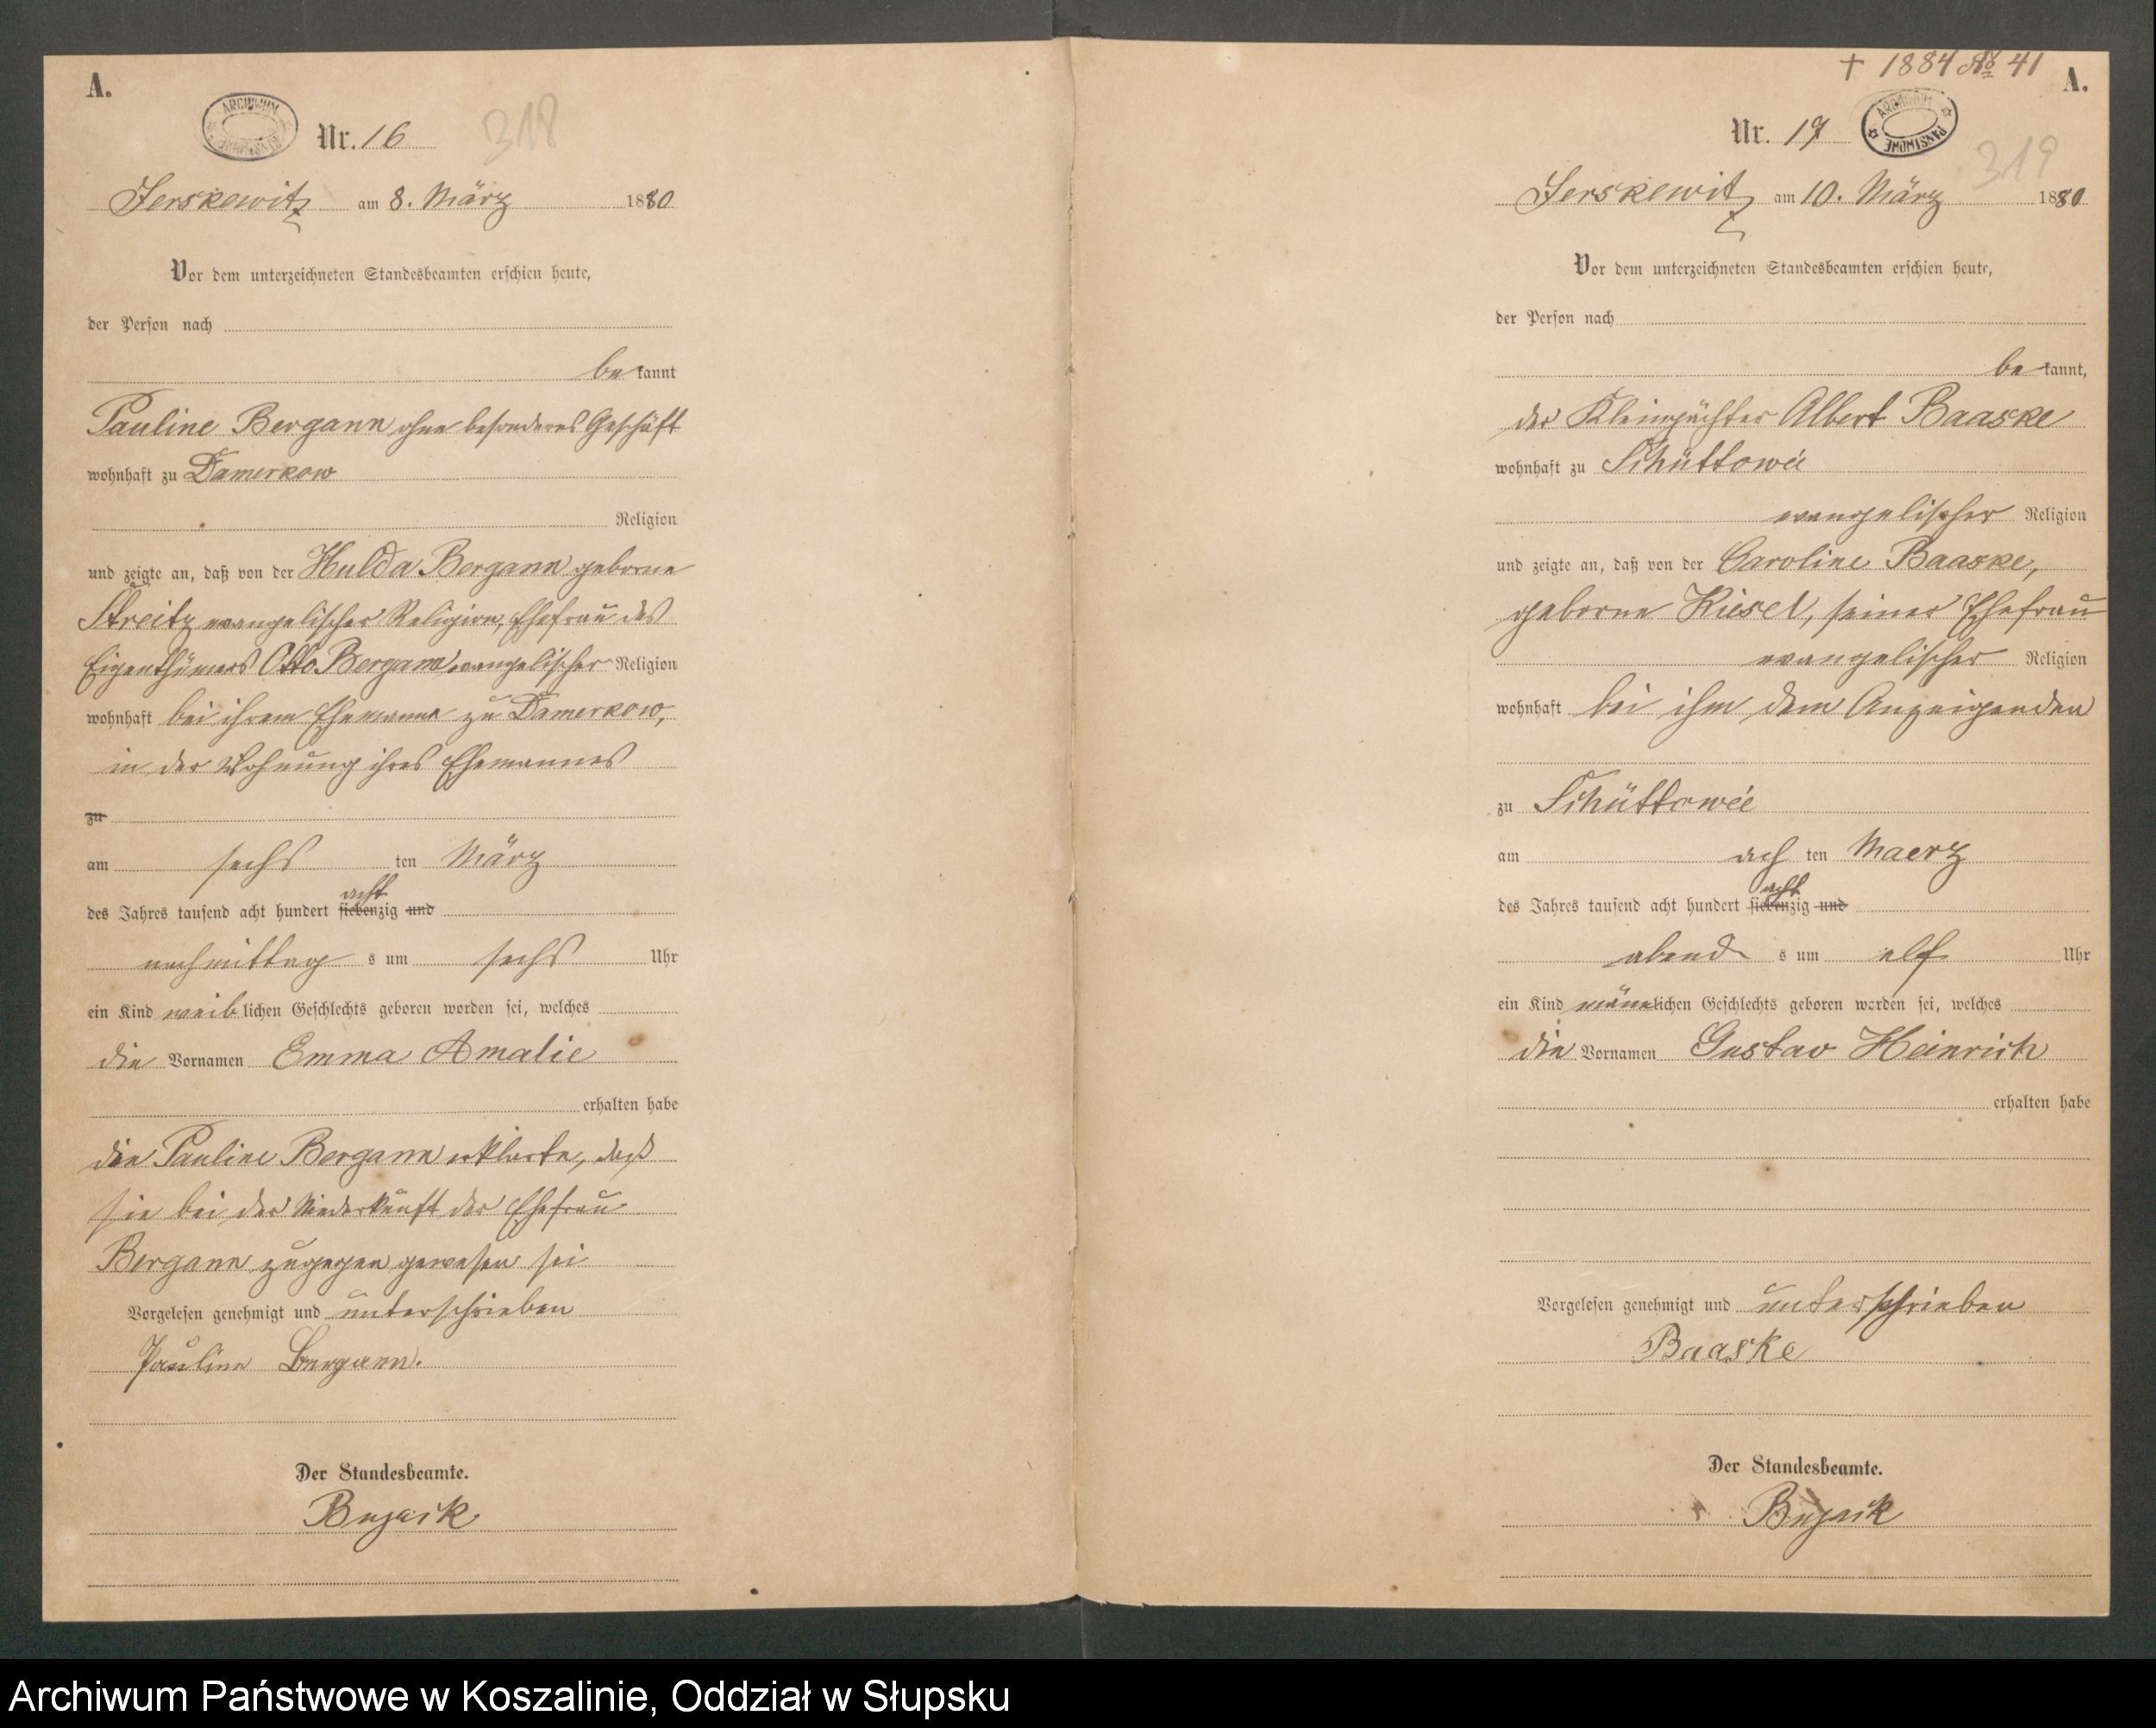 A.
ARCHIWUM PAŃSTWOWE
Nr. 16
318
Jerskewitz am 8. März 1880
Vor dem unterzeichneten Standesbeamten erschien heute,
der Person nach
bekannt
Pauline Bergann ohne besonderes Geschäft
wohnhaft zu Damerkow
Religion
und zeigte an, daß von der Hulda Bergann geborne
Streitz evangelischer Religion, Ehefrau des
Eigenthümers Otto Bergann evangelischer Religion
wohnhaft bei ihrem Ehemanne zu Damerkow,
in der Wohnung ihres Ehemannes
zu
am sechs ten März
acht
des Jahres tausend acht hundert siebenzig und
nachmittag s um sechs Uhr
ein Kind weiblichen Geschlechts geboren worden sei, welches
die Vornamen Emma Amalie
erhalten habe
die Pauline Bergann erklärte, daß
sie bei der Niederkunft der Ehefrau
Bergann zugegen gewesen sei
Vorgelesen genehmigt und unterschrieben
Pauline Bergann.
Der Standesbeamte.
† 1884 No 41
A.
Nr. 17
ARCHIWUM PAŃSTWOWE
319
Jerskewitz am 10. März 1880
Vor dem unterzeichneten Standesbeamten erschien heute,
der Person nach
bekannt,
der Kleinpächter Albert Baaske
wohnhaft zu Schüttowée
evangelischer Religion
und zeigte an, daß von der Caroline Baaske,
geborne Kiesel, seiner Ehefrau
evangelischer Religion
wohnhaft bei ihm dem Anzeigenden
zu Schüttowée
am ach ten Maerz
acht
des Jahres tausend acht hundert siebenzig und
abend s um elf Uhr
ein Kind männlichen Geschlechts geboren worden sei, welches
die Vornamen Gustav Heinrich
erhalten habe
Vorgelesen genehmigt und unterschrieben
Baaske
Der Standesbeamte.
Archiwum Państwowe w Koszalinie, Oddział w Słupsku